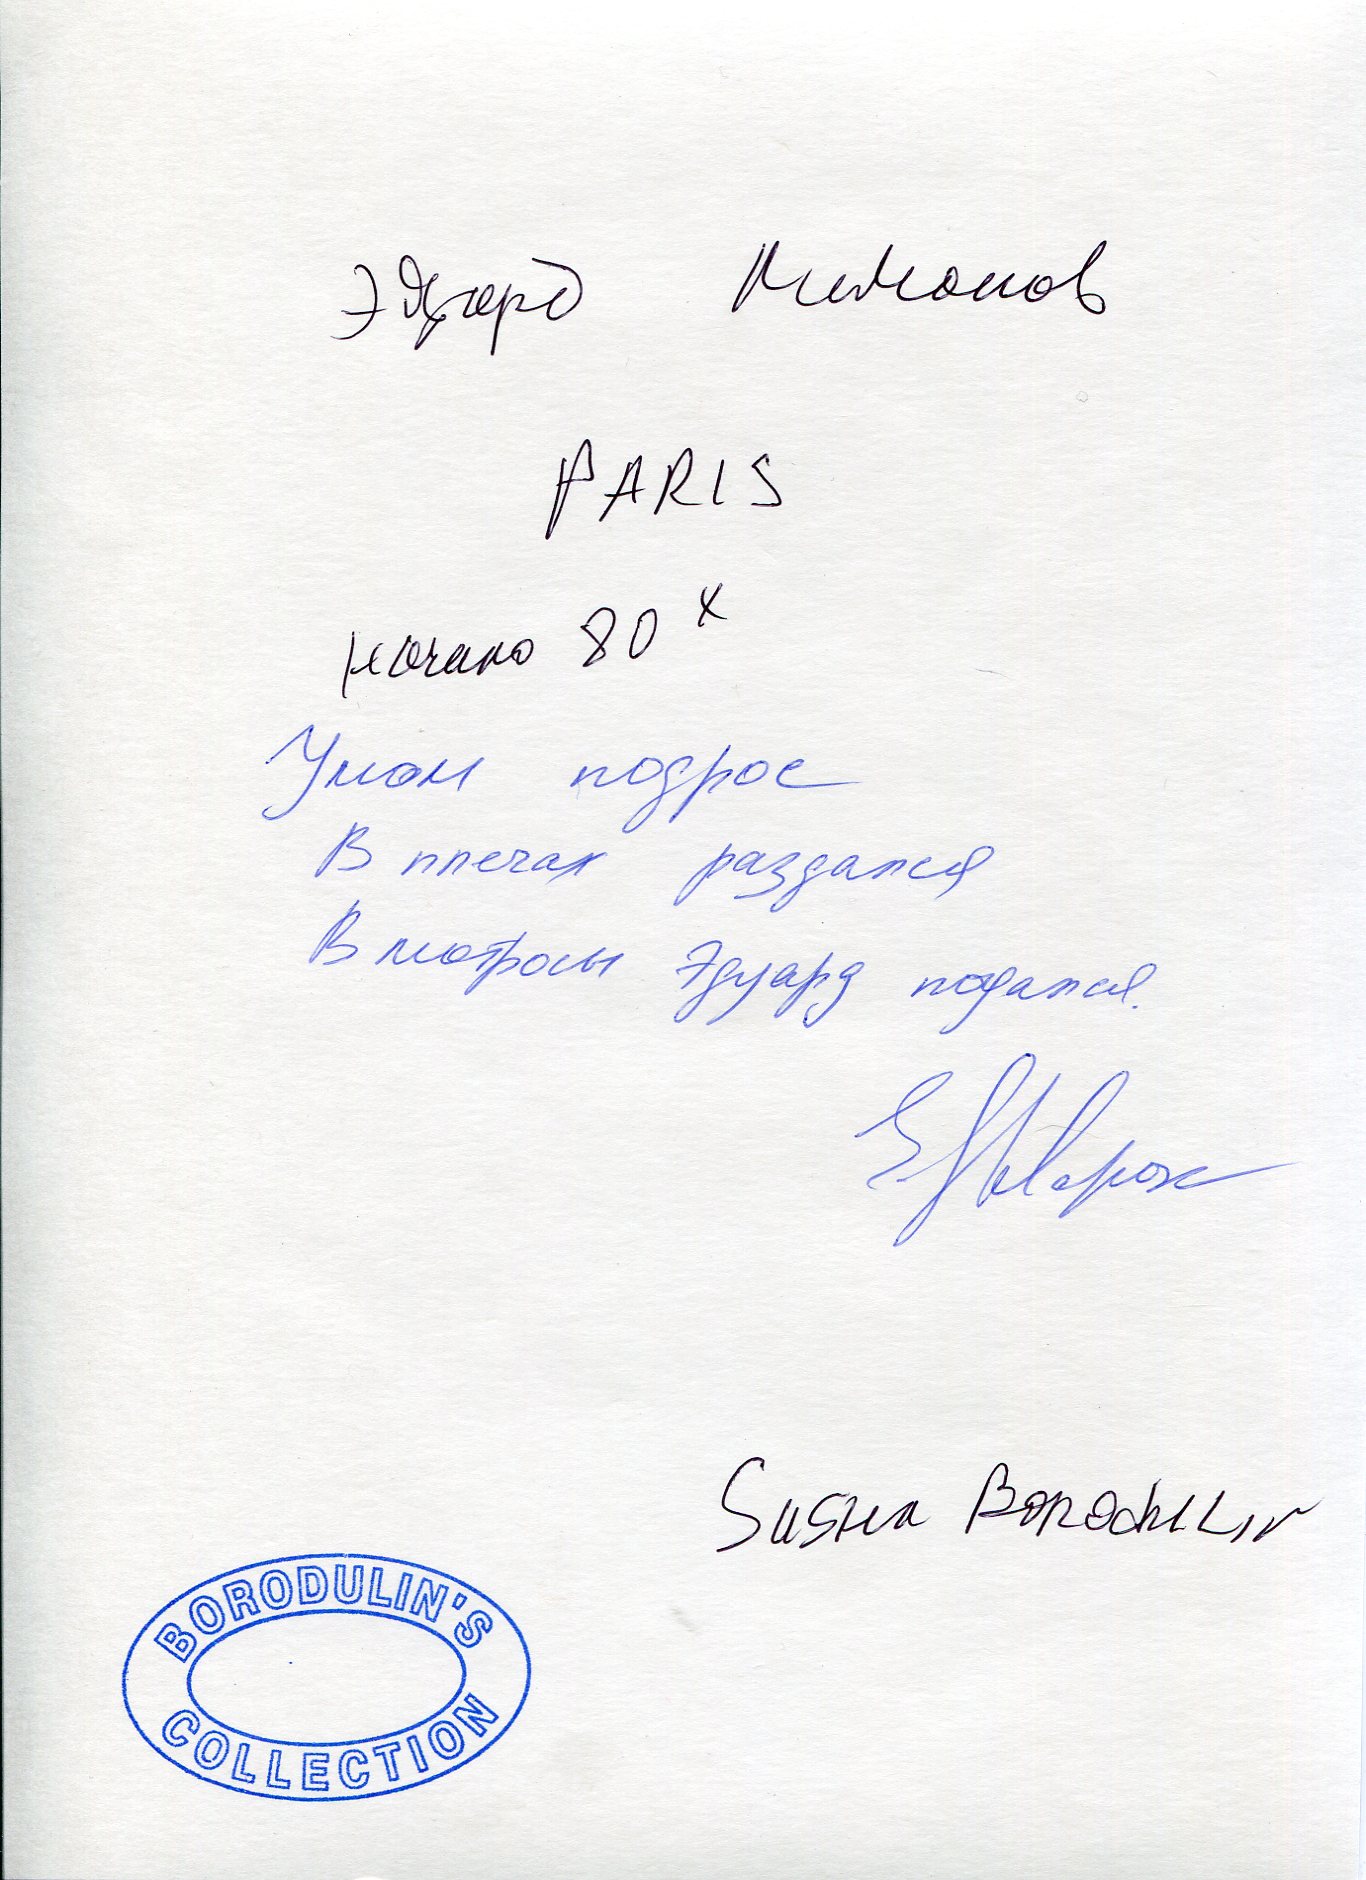 Эдуард Лимонов
PARIS
начало 80х
Умом подрос
В плечах раздался
В матросы Эдуард подался.
Sasha Borodulin
BORODULIN'S
COLLECTION